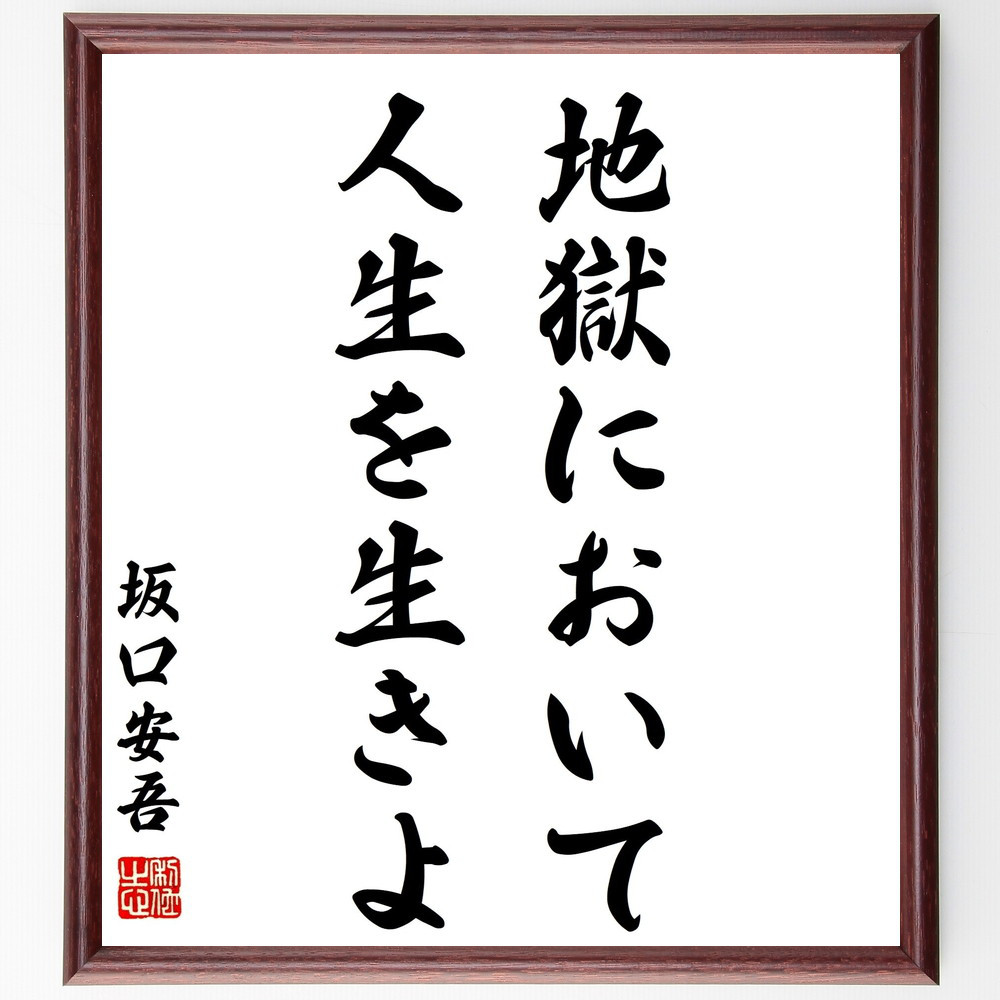 地獄において
人生を生きよ
坂口安吾